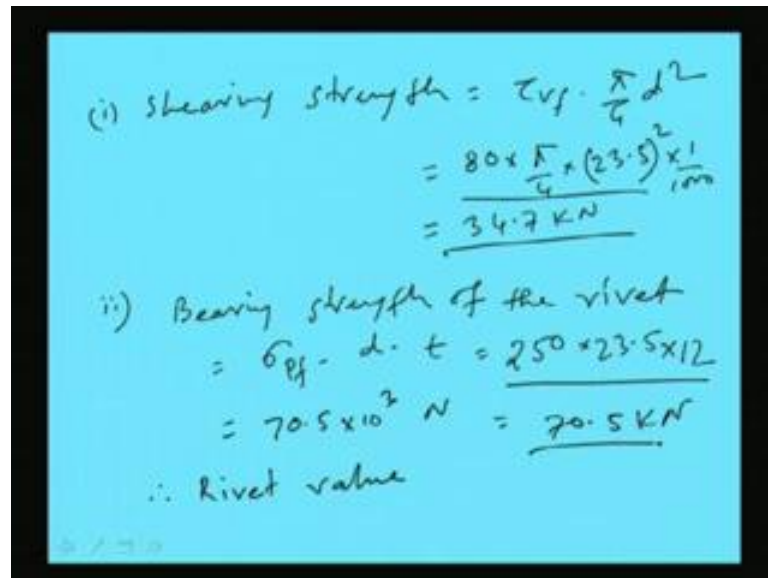 (i) Shearing strength = τvf . π/4 d²
= 80 × π/4 × (23.5)² × 1/1000
= 34.7 KN
ii) Bearing strength of the rivet
= σpf . d . t = 250 × 23.5 × 12
= 70.5 × 10³ N = 70.5 KN
∴ Rivet value